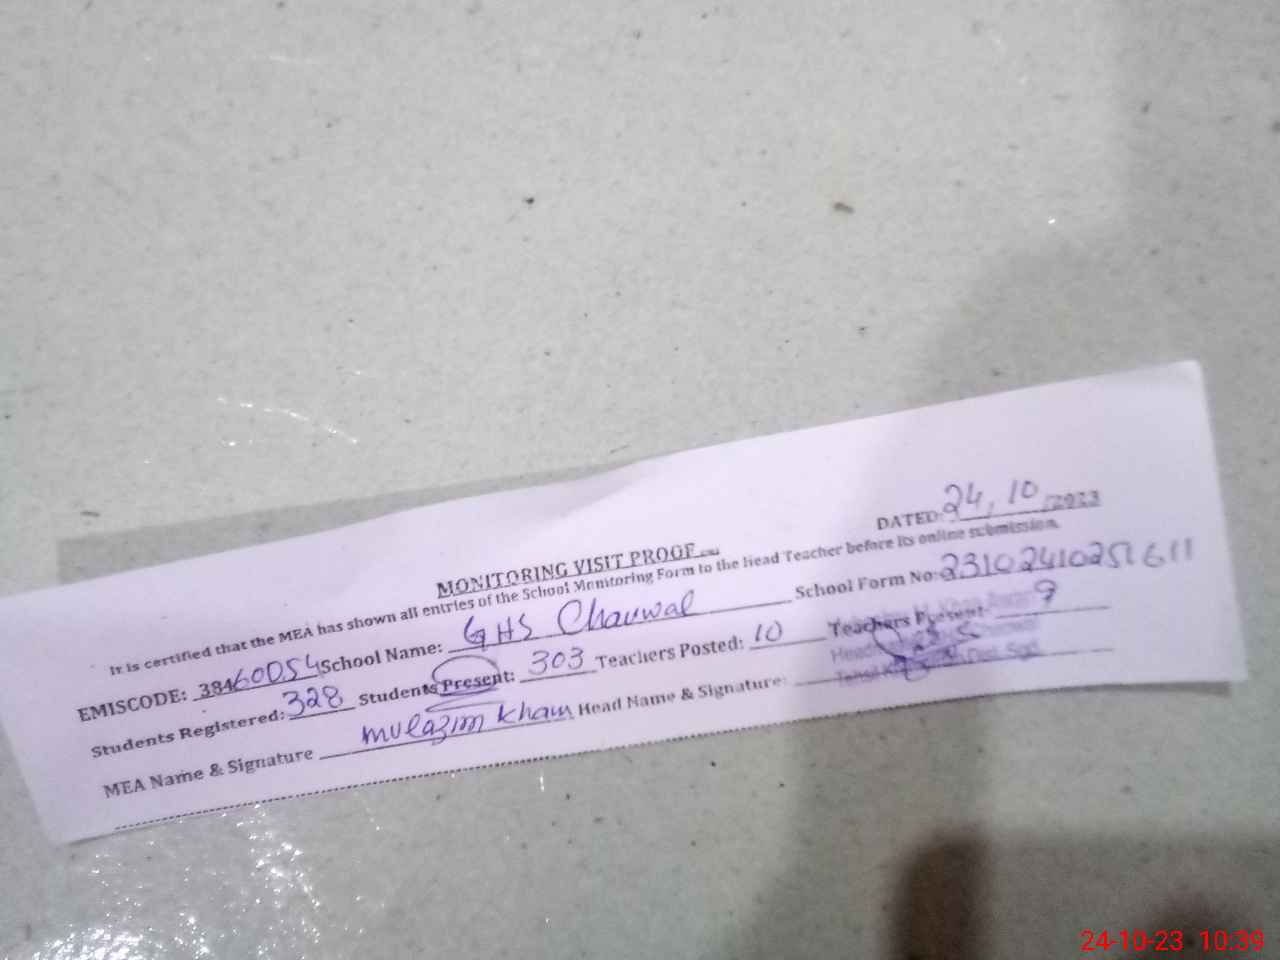 DATED: 24, 10 /2023
MONITORING VISIT PROOF
It is certified that the MEA has shown all entries of the School Monitoring Form to the Head Teacher before its online submission.
EMISCODE: 38460054 School Name: GHS Chauwal School Form No: 23102410251611
Students Registered: 328 Students Present: 303 Teachers Posted: 10 Teachers Present: 9
MEA Name & Signature mulazim Kham Head Name & Signature:
24-10-23 10:39